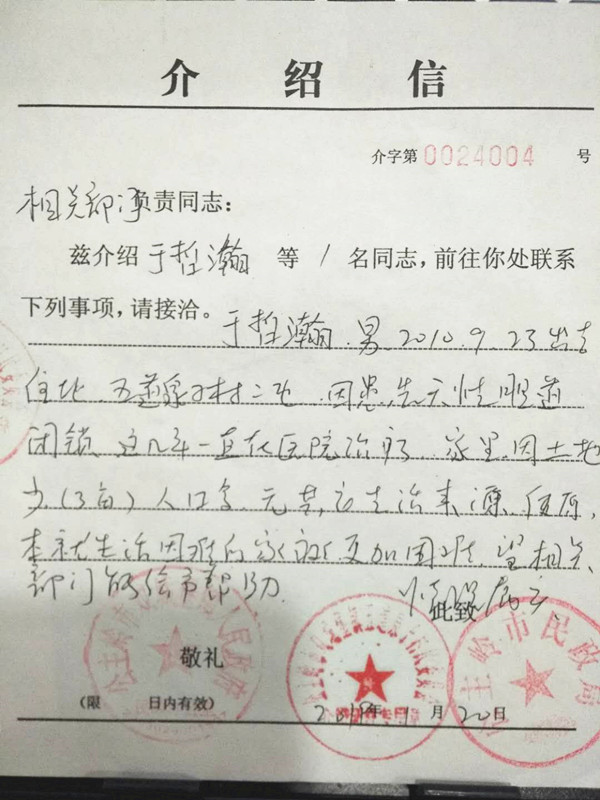 介绍信
介字第0024004号
相关部门负责同志：
兹介绍于哲瀚等1名同志，前往你处联系
下列事项，请接洽。
于哲瀚.男.2010.9.23出生
住址 二屯.因患先天性胆道
闭锁 这几年一直在医院治疗 家里因土地
少(3亩)人口多 其它生活来源
本就生活困难的家 更加困难.望相关
部门能给予帮助.
情况属实
此致
敬礼
(限 日内有效)
年 月20日
主岭市民政局